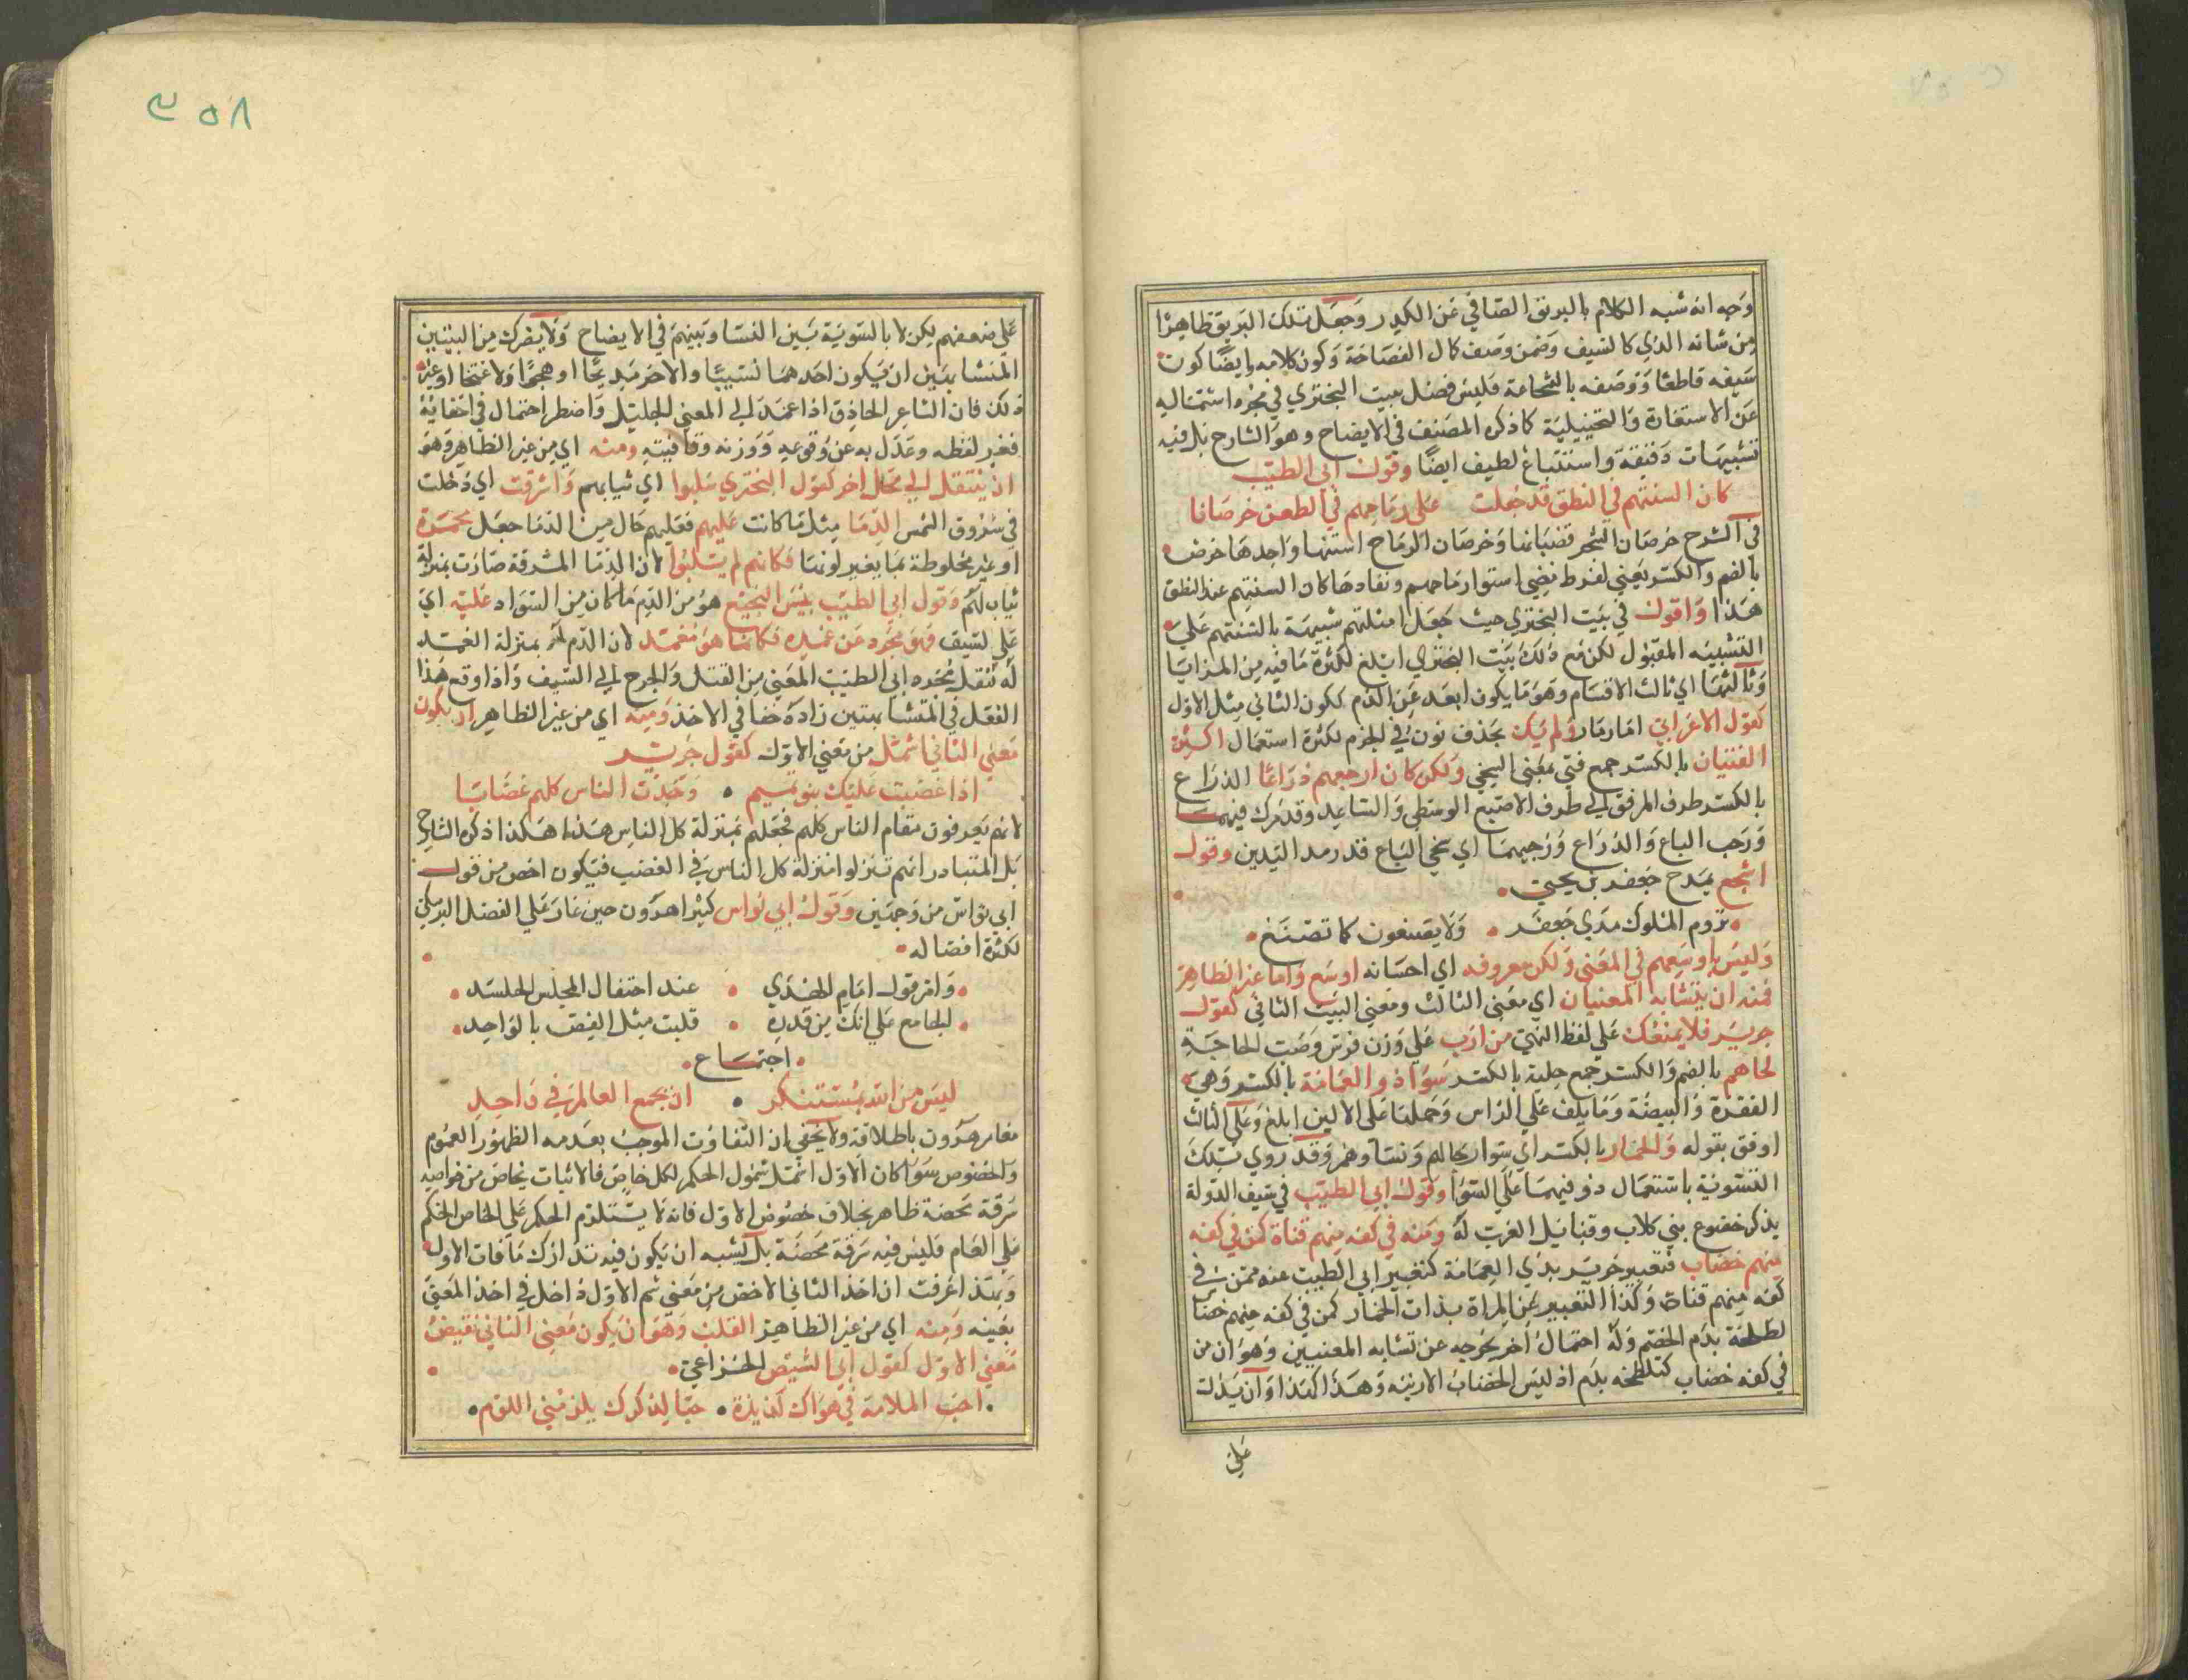 وجه انه شبه الكلام بالبريق الصافي عن الكدر وجعل تلك البريق ظاهرا
من شانه الذي كالسيف وضمن وصف كمال الفصاحة وكون كلامه وايضا كون
سيفه قاطعا ووصفه بالشجاعة فليس فضل بيت البحتري في مجرد اشتماله
عن الاستعارة والتخييلية كما ذكره المصنف في الايضاح وهو الشارح بل فيه
تشبيهات دقيقة واستتباع لطيف ايضا وقول ابي الطيب
كان السنتهم في النطق قد جعلت على رماحهم في الطعن خرصانا
في الشرح خرصان الشجر قضبانها وخرصان الرماح اسنتها واحدها خرص
بالضم والكسر يعني لفرط مضي استوار رماحهم ونفادها كان السنتهم عند النطق
هذا واقول في بيت البحتري حيث جعل امثلتهم شبيهة بالسنتهم على
التشبيه المقبول لكن مع ذلك بيت البحتري ابلغ لكثرة ما فيه من المزايا
وثالثها اي ثالث الاقسام وهو ما يكون ابعد عن الذم ككون الثاني مثل الاول
كقول الاعرابي ولم يك بحذف نون في الجزم لكثرة استعمال اكثر
الفتيان بالكسر جمع فتى بمعنى السخي ولكن كان ارحبهم ذراعا الذراع
بالكسر طرف المرفق الى طرف الاصبع الوسطى والساعد وقد يذكر فيهما
ورحب الباع والذراع ورحبهما اي سخي الباع قدر مد اليدين وقول
اشجع يمدح جعفر بن يحيى
تروم الملوك مدى جعفر ولا يصنعون كما تصنع
وليس باوسعهم في المعنى ولكن معروفه اي احسانه اوسع واما غير الظاهر
فمنه ان يتشابه المعنيان اي معنى الثالث ومعنى البيت الثاني كقول
جرير فلا يمنعك على لفظ النهي من ارب على وزن فرس وضبت الحاجة
لحاهم بالضم والكسر جمع حلية بالكسر سواء ذو العمامة بالكسر وهي
الفقرة والبيضة وما يلف على الراس وحملها على الالين ابلغ وعلى الثالث
اوفق بقوله والخمار بالكسر اي سواء رجالهم ونساوهم وقد روي بتلك
التسوية باستعمال ذو فيهما على السوا وقول ابي الطيب في سيف الدولة
يذكر خضوع بني كلاب وقبائل العرب له ومنه في كفه منهم قناة كمن في كفه
منهم خضاب فتعبير جرير بذي العمامة كتعبير ابي الطيب عنه ممن في
كفه منهم قناة وكذا التعبير عن المراة بذات الخمار كمن في كفه منهم خضا
لطخة بدم الخصم وله احتمال اخر يخرجه عن تشابه المعنيين وهو ان من
في كفه خضاب كتلطخه بدم اذ ليس الخضاب الا زينه وهذا كذا وان يذلت
على
٣٥٨
على ضعفهم يكن لا بالتسوية بين النسا وبينهم في الايضاح ولا يضرك من البيتين
المتشابهين ان يكون احدهما نسيبا والاخر مديحا او هجيا ولا افتخا او غير
ذلك فان الشاعر الحاذق اذا عمد الى المعنى الجليل واضطر احتال في اخفائه
فغير لفظه وعدل به عن نوعه ووزنه وقافيته ومنه اي من غير الظاهر وهو
ان ينتقل الى محل اخر كقول البحتري سلبوا اي ثيابهم واشرقت اي دخلت
في شروق الشمس الدما مثل ما كانت عليهم فعليهم حال من الدما جعل محمرة
او غير مخلوطة بما يغير لونها فكانهم لم يسلبوا لان الدما المشرقة صارت بمنزلة
ثياب لهم وقول ابي الطيب يبس النجيع هو من الدم ما كان من السواد عليه اي
على السيف فهو مجرد عن غمده فكانما هو مغمد لان الدم له بمنزلة الغمد
له نتقل بمجرده ابي الطيب المعنى من القتل والجرح الى السيف واذا وقع هذا
الفعل في المتشابهتين زاده خفا في الاخذ ومنه اي من غير الظاهر ان يكون
معنى الثاني اشمل من معنى الاول كقول جرير
اذا غضبت عليك بنو تميم وجدت الناس كلهم غضابا
لانهم يعرفون مقام الناس كلهم فجعلهم بمنزلة كل الناس هذا هكذا ذكره الشارح
بل المتبادر انهم تنزلوا منزلة كل الناس في الغضب فيكون اخص من قول
ابي نواس من وجهين وقول ابي نواس كثيرا هرون حين غار على الفضل البرمكي
لكثرة افضاله
وامر قول امام الهدي عند احتفال المجلس الحاسد
الجامع على انك من قدره قلبت مثل الفضل بالواحد
اجتماع
ليس من الله بمستنكر ان يجمع العالم في واحد
مغاير هرون باطلاقة ولا يخفى ان التفاوت الموجب بعدمه الظهور العموم
والخصوص سوا كان الاول اشتمل شمول الحكم لكل خاص فالاثبات بخاص من خواصه
سرقة محضة ظاهر بخلاف خصوص الاول فانه لا يستلزم الحكم على الخاص الحكم
على العام فليس فيه سرقة محضة بل يشبه ان يكون فيه تدارك ما فات الاول
وبهذا عرفت ان اخذ الثاني الاخص من معنى ثم الاول داخل في اخذ المعنى
بعينه ومنه اي من غير الظاهر القلب وهو ان يكون معنى الثاني نقيض
معنى الاول كقول ابي الشيص الخزاعي
اجد الملامة في هواك لذيذة حبا لذكرك يلزمني اللوم